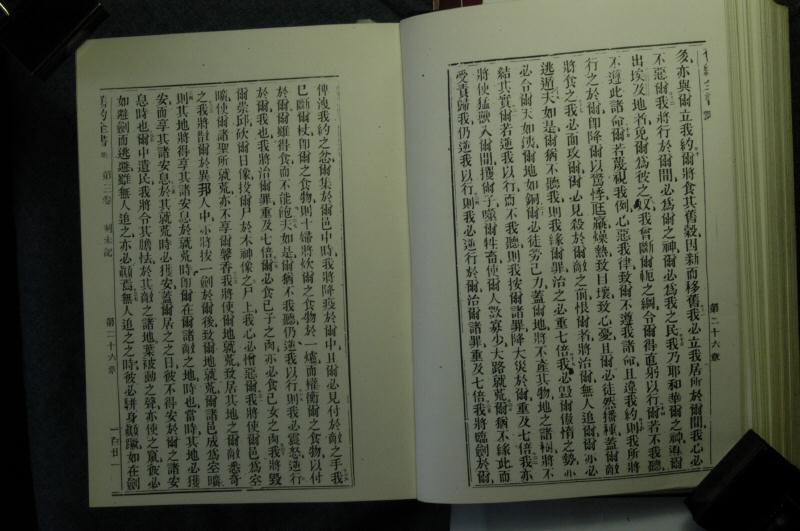 第二十六章
多亦與爾立我約爾將食其舊穀因新而移舊我必立我居所於爾間我心必
不惡爾我將行於爾間必爲爾之神爾必爲我之民我乃耶和華爾之神導爾
出埃及地者免爾爲彼之奴我會斷爾軛之綱令爾得直躬以行爾若不我聽
不遵此諸命爾若蔑視我例心惡我律致爾不遵我諸命且違我約則我所將
行之於爾卽降爾以駡悸尫羸燥熱致目壞致心憂且爾必徒然播種蓋爾敵
將食之我必面攻爾爾必見殺於爾敵之前恨爾者將治爾無人追爾爾亦必
逃遁夫如是爾猶不我聽則我緣爾罪治之必重七倍我必毀爾傲惰之勢亦
必令爾天如鐵爾地如銅爾必徒勞己力蓋爾地將不產其物地之諸樹將不
結其實爾若逆我以行而不我聽則我按爾諸罪降大災於爾重七倍我亦
將使猛獸入爾間攫爾子嚙爾牲畜使爾人數寡少大路就荒爾猶不緣此而
受責歸我仍逆我以行則我必逆行於爾治爾諸罪重及七倍我將臨劍於爾
俾洩我約之忿爾集於爾邑中時我將降疫於爾中且爾必見付於敵之手我
已斷爾杖卽爾之食物則十婦將炊爾之食物於一爐而權衡爾之食物以付
於爾爾雖得食而不能飽夫如是爾猶不我聽仍逆我以行則我必震怒逆行
於爾我也我將治爾罪重及七倍爾必食己子之肉亦必食己女之肉我將毀
爾崇邱砍爾日像投爾尸於木神像之尸上我心必憎惡爾我將使爾邑爲空
曠使爾諸聖所就荒亦不享爾馨香我將使爾地就荒致居其地之爾敵悉奇
之我將散爾於異邦人中亦將拔一劍於爾後致爾地就荒爾諸邑成爲空曠
則其地將得享其諸安息於其就荒時卽爾在爾諸敵之地時也當時其地必獲
安而享其諸安息於其就荒時必獲安蓋爾居之之日彼不得安於爾之諸安
息時也爾中遺民我將令其膽怯於其敵之諸地葉被動之聲亦使之竄彼必
如避劍而逃遁雖無人追之亦必顚蹶無人追之之時彼必騈身顚蹶如在劍
舊約全書 第三卷 利未記 第二十六章 一百廿一